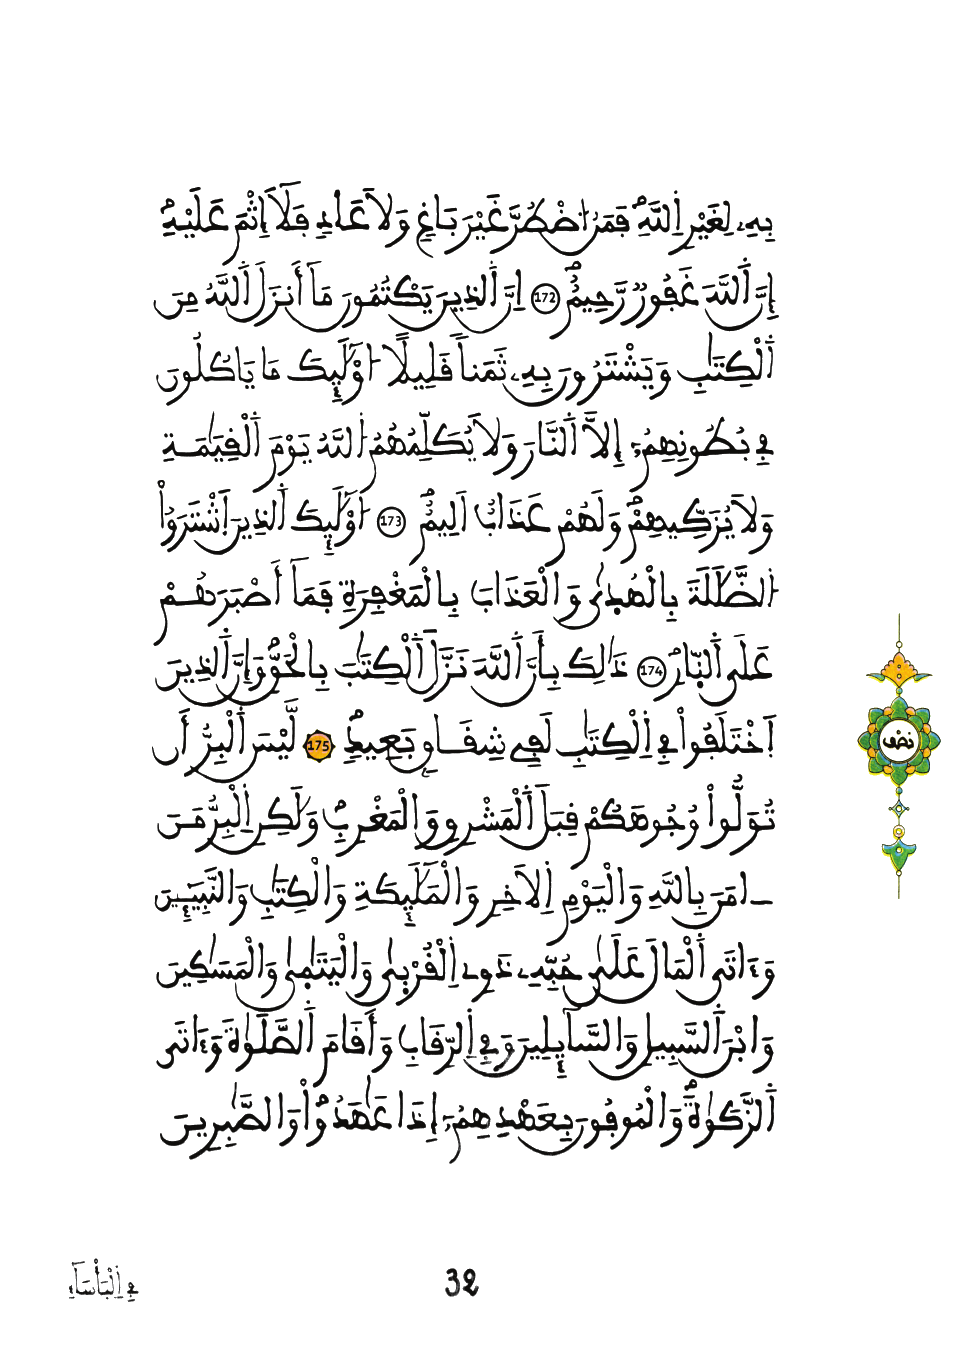 بِهِۦ لِغَيْرِ اِللَّهِۖ فَمَنُ اُضْطُرَّ غَيْرَ بَاغٖ وَلَا عَادٖ فَلَآ إِثْمَ عَلَيْهِۖ
إِنَّ اَللَّهَ غَفُورٞ رَّحِيمٌۖ 172 اِنَّ اَلذِينَ يَكْتُمُونَ مَآ أَنزَلَ اَللَّهُ مِنَ
اَلْكِتَٰبِ وَيَشْتَرُونَ بِهِۦ ثَمَناٗ قَلِيلًا اُوْلَٰٓئِكَ مَا يَاكُلُونَ
فِے بُطُونِهِمُۥٓ إِلَّا اَلنَّارَ وَلَا يُكَلِّمُهُمُ اُللَّهُ يَوْمَ اَلْقِيَٰمَةِ
وَلَا يُزَكِّيهِمْۖ وَلَهُمْ عَذَابٌ اَلِيمٌۖ 173 اُوْلَٰٓئِكَ اَلذِينَ اَشْتَرَوُاْ
اُلضَّلَٰلَةَ بِالْهُد۪يٰ وَالْعَذَابَ بِالْمَغْفِرَةِ فَمَآ أَصْبَرَهُمْ
عَلَي اَلنّ۪ارِۖ 174 ذَٰلِكَ بِأَنَّ اَللَّهَ نَزَّلَ اَلْكِتَٰبَ بِالْحَقِّۖ وَإِنَّ اَلذِينَ
اَخْتَلَفُواْ فِے اِلْكِتَٰبِ لَفِے شِقَاقِۢ بَعِيدٖۖ 175 لَّيْسَ اَلْبِرُّ أَن
تُوَلُّواْ وُجُوهَكُمْ قِبَلَ اَلْمَشْرِقِ وَالْمَغْرِبِۖ وَلَٰكِنِ اِلْبِرُّ مَنَ
ـامَنَ بِاللَّهِ وَالْيَوْمِ اِلَاخِرِ وَالْمَلَٰٓئِكَةِ وَالْكِتَٰبِ وَالنَّبِيٓـِٕينَ
وَءَاتَي اَلْمَالَ عَلَيٰ حُبِّهِۦ ذَوِے اِلْقُرْب۪يٰ وَالْيَتَٰم۪يٰ وَالْمَسَٰكِينَ
وَابْنَ اَلسَّبِيلِ وَالسَّآئِلِينَ وَفِے اِلرِّقَابِ وَأَقَامَ اَلصَّلَوٰةَ وَءَاتَي
اَلزَّكَوٰةَۖ وَالْمُوفُونَ بِعَهْدِهِمُۥٓ إِذَا عَٰهَدُواْۖ وَالصَّٰبِرِينَ
نصف
32
فِے اِلْبَأْسَآءِ